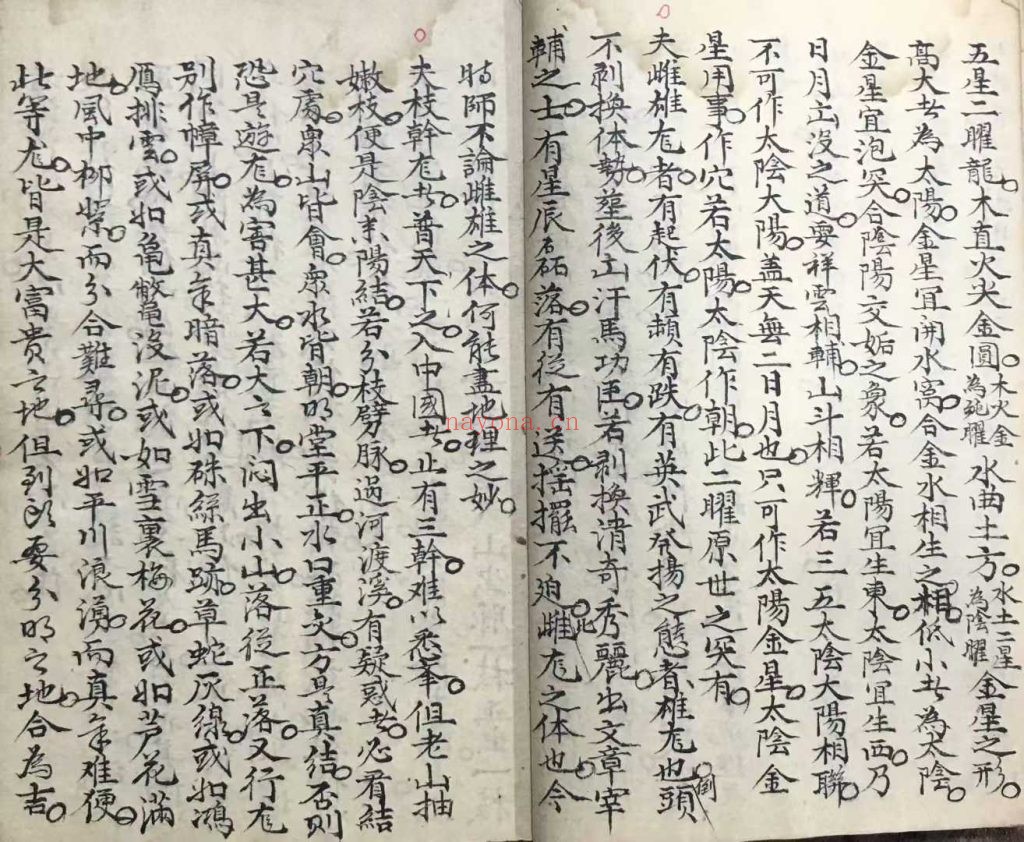 五星二曜龍木直火尖金圓木火金為純曜水曲土方水土二星為陰曜金星之形
高大者為太陽金星宜開水窩合金水相生之相低小者為太陰
金星宜泡突合陰陽交姤之象若太陽宜生東太陰宜生西乃
日月出沒之道要祥雲相輔山斗相輝若三五太陰大陽相聯
不可作太陰大陽蓋天無二日月也只可作太陽金星太陰金
星用事作穴若太陽太陰作朝此二曜原世之突有
夫雌雄尨者有起伏有頓有跌有英武發揚之態者雄尨也頭倒
不剥換体勢後出汗馬功臣若剥換清奇秀麗出文章宰
輔之士有星辰磊落有從有送摇擺不廹此雌尨之体也今
時師不論雌雄之体何能盡地理之妙
夫枝幹尨者普天下之入中國者止有三幹难以悉峯但老山抽
嫩枝便是陰来陽結若分枝劈脉過河渡溪有疑惑者必看結
穴處衆山皆會衆水皆朝明堂平正水口重交方是真結否則
恐是遊尨為害甚大若大之下闷出小山落從正落又行尨
别作幛屏或真気暗落或如硃絲馬跡草蛇灰線或如鴻
鴈排雲或如亀鱉沒泥或如雪裏梅花或如芦花滿
地風中柳絮而分合難尋或如平川浪湧而真気难便
此等尨皆是大富貴之地但到頭要分明之地合為吉
nayona.cn